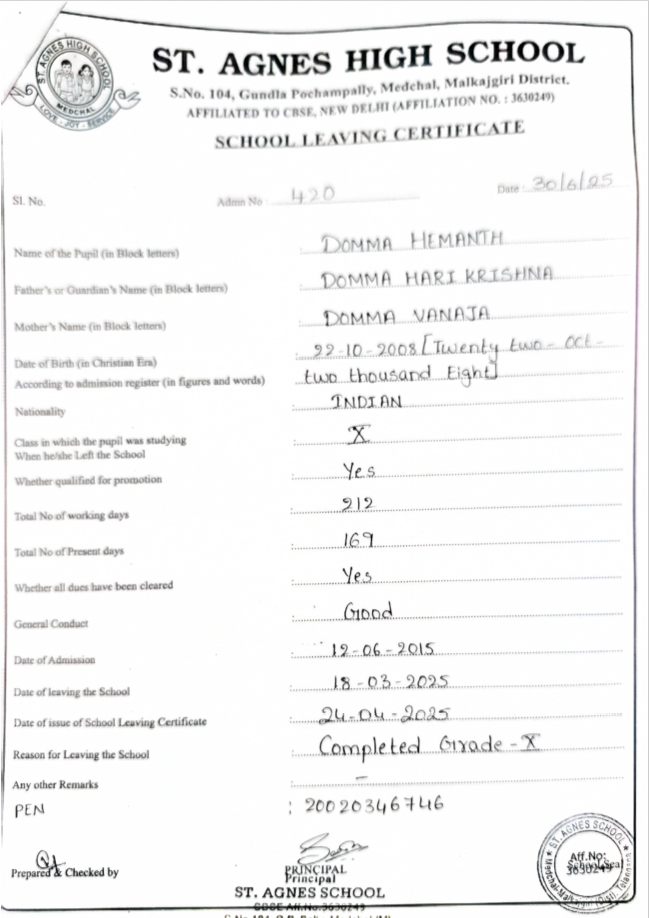 ST. AGNES HIGH SCHOOL
MEDCHAL
LOVE - JOY - SERVICE
ST. AGNES HIGH SCHOOL
S.No. 104, Gundla Pochampally, Medchal, Malkajgiri District.
AFFILIATED TO CBSE, NEW DELHI (AFFILIATION NO. : 3630249)
SCHOOL LEAVING CERTIFICATE
Sl. No. Admn No : 420 Date : 30/6/25
Name of the Pupil (in Block letters) : DOMMA HEMANTH
Father's or Guardian's Name (in Block letters) : DOMMA HARI KRISHNA
Mother's Name (in Block letters) : DOMMA VANAJA
Date of Birth (in Christian Era) : 22-10-2008 [Twenty two - Oct -
According to admission register (in figures and words) two thousand Eight]
Nationality : INDIAN
Class in which the pupil was studying : X
When he/she Left the School
Whether qualified for promotion : Yes
Total No of working days : 212
Total No of Present days : 169
Whether all dues have been cleared : Yes
General Conduct : Good
Date of Admission : 12-06-2015
Date of leaving the School : 18-03-2025
Date of issue of School Leaving Certificate : 24-04-2025
Reason for Leaving the School : Completed Grade - X
Any other Remarks : –
PEN : 20020346746
Prepared & Checked by
PRINCIPAL
Principal
ST. AGNES SCHOOL
CBSE Aff.No:3630249
ST. AGNES SCHOOL
Aff.No:
School Seal
3630249